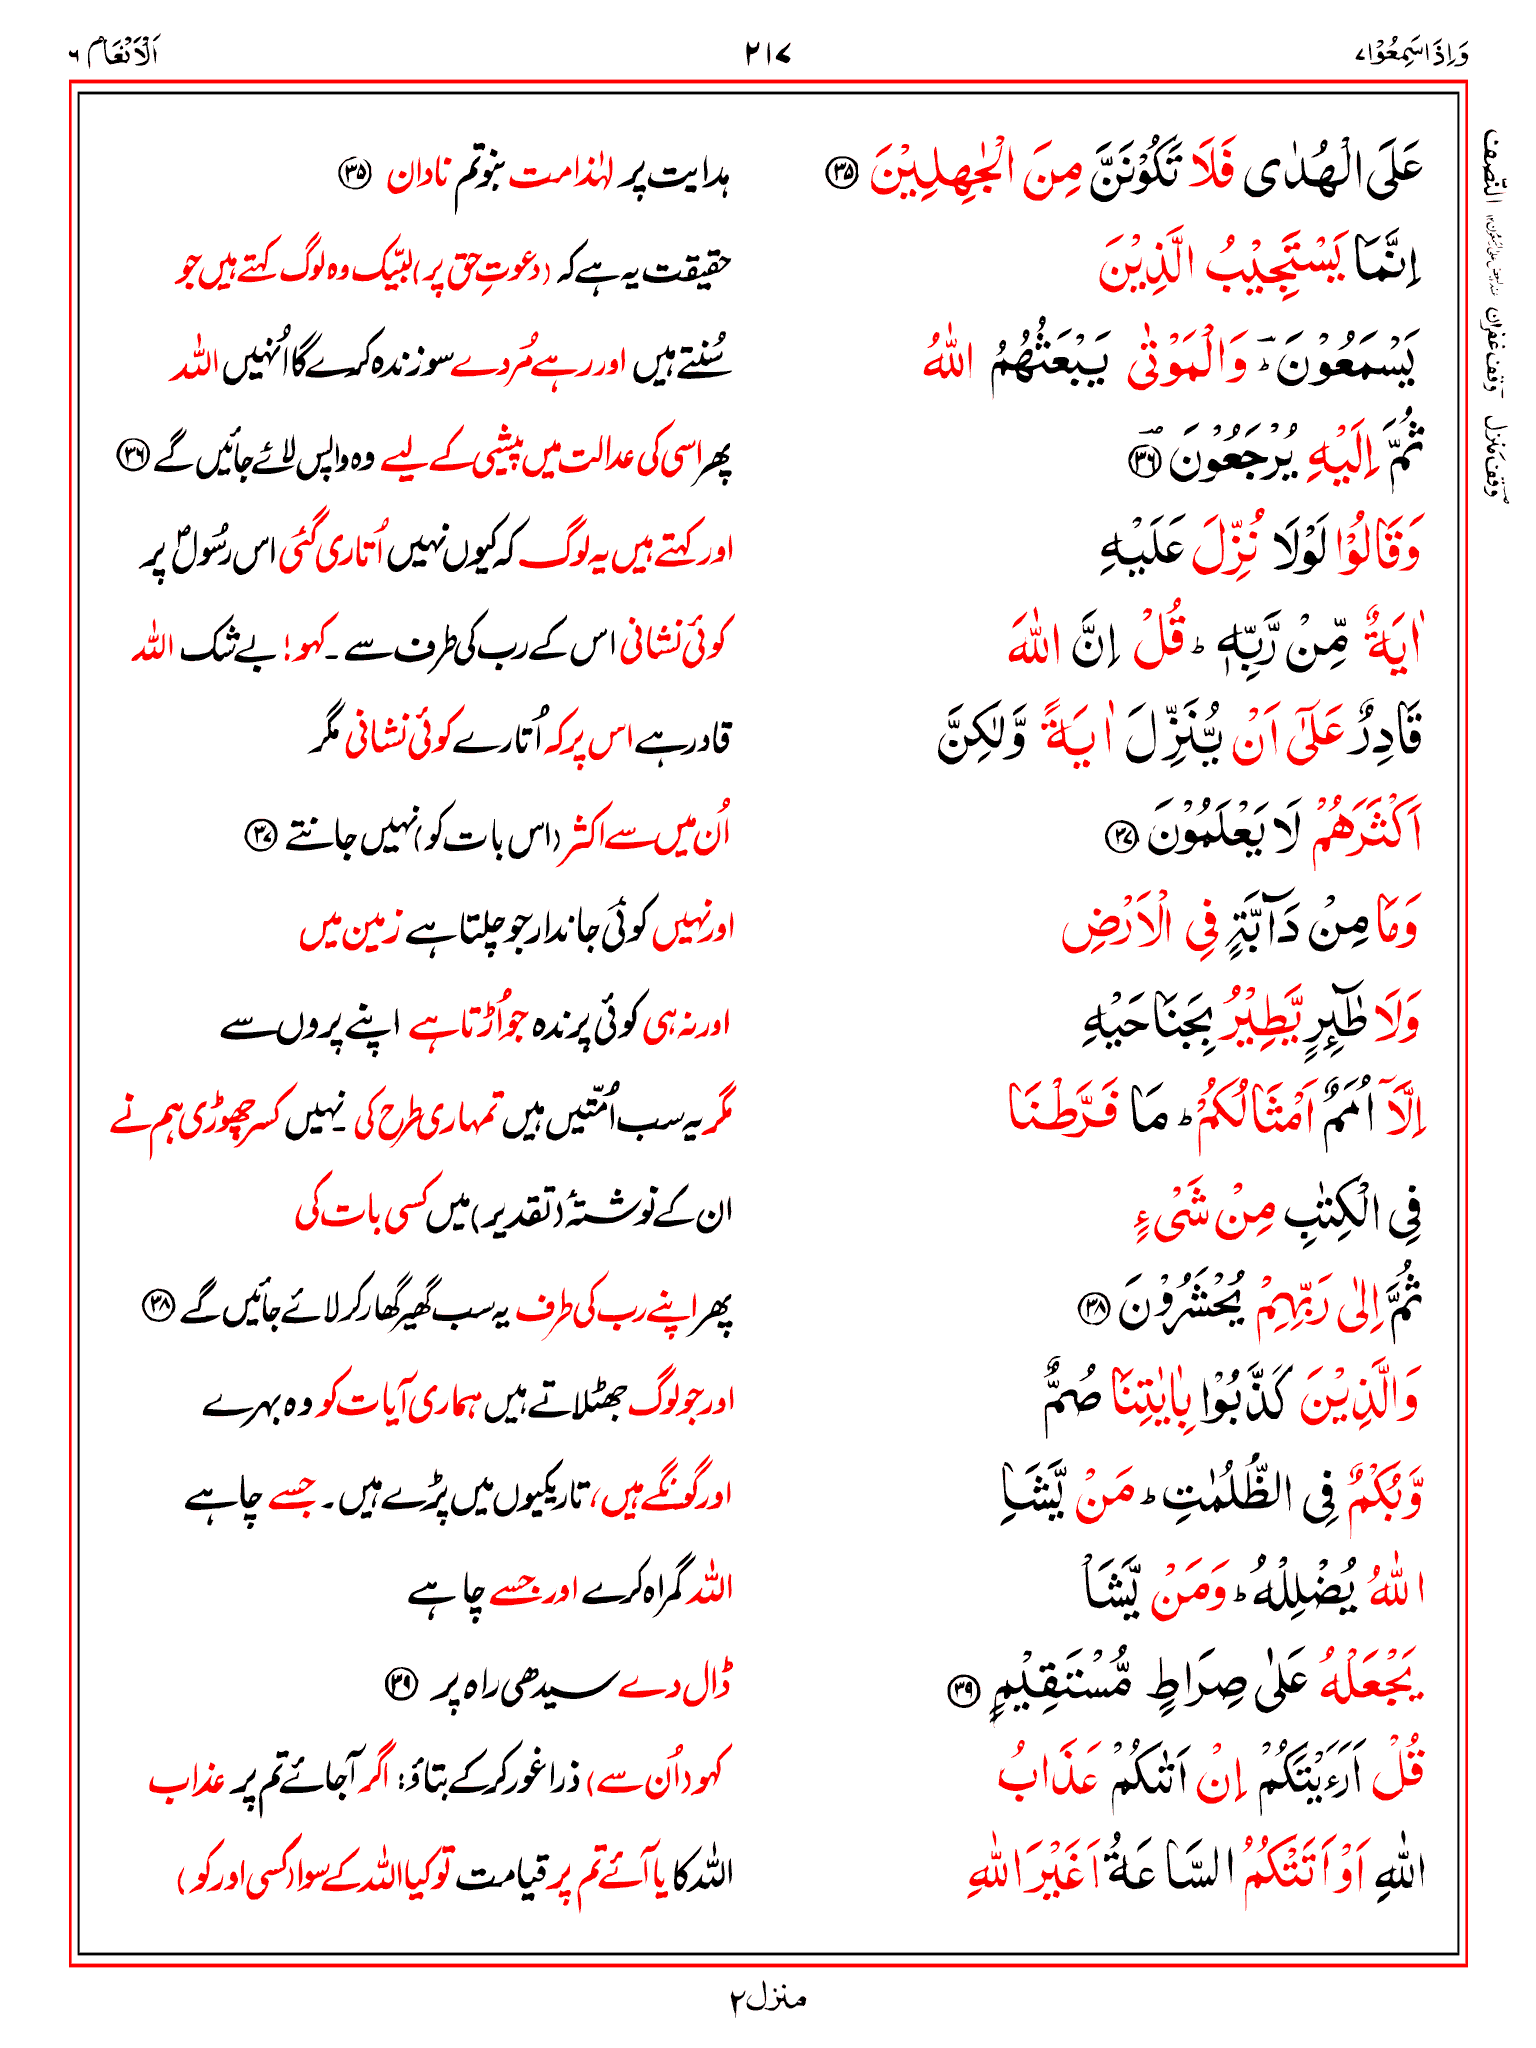 وَاِذَا سَمِعُوْا ٧
٢١٧
اَلْاَنْعَام ٦
عَلَى الْهُدٰى فَلَا تَكُوْنَنَّ مِنَ الْجٰهِلِيْنَ ﴿۳۵﴾ ہدایت پر لہٰذا مت بنو تم نادان ﴿۳۵﴾
اِنَّمَا يَسْتَجِيْبُ الَّذِيْنَ حقیقت یہ ہے کہ (دعوتِ حق پر) لبیّک وہ لوگ کہتے ہیں جو
يَسْمَعُوْنَ ؕ وَالْمَوْتٰى يَبْعَثُهُمُ اللّٰهُ سُنتے ہیں اور رہے مُردے سو زندہ کرے گا اُنہیں اللہ
ثُمَّ اِلَيْهِ يُرْجَعُوْنَ ﴿۳۶﴾ پھر اسی کی عدالت میں پیشی کے لیے وہ واپس لائے جائیں گے ﴿۳۶﴾
وَقَالُوْا لَوْلَا نُزِّلَ عَلَيْهِ اور کہتے ہیں یہ لوگ کہ کیوں نہیں اُتاری گئی اس رسُولؐ پر
اٰيَةٌ مِّنْ رَّبِّهٖ ؕ قُلْ اِنَّ اللّٰهَ کوئی نشانی اس کے رب کی طرف سے ۔ کہو! بے شک اللہ
قَادِرٌ عَلٰٓى اَنْ يُّنَزِّلَ اٰيَةً وَّلٰكِنَّ قادر ہے اس پر کہ اُتارے کوئی نشانی مگر
اَكْثَرَهُمْ لَا يَعْلَمُوْنَ ﴿۳۷﴾ اُن میں سے اکثر (اس بات کو) نہیں جانتے ﴿۳۷﴾
وَمَا مِنْ دَآبَّةٍ فِى الْاَرْضِ اور نہیں کوئی جاندار جو چلتا ہے زمین میں
وَلَا طٰٓئِرٍ يَّطِيْرُ بِجَنَاحَيْهِ اور نہ ہی کوئی پرندہ جو اُڑتا ہے اپنے پروں سے
اِلَّاۤ اُمَمٌ اَمْثَالُكُمْ ؕ مَا فَرَّطْنَا مگر یہ سب اُمّتیں ہیں تمہاری طرح کی ۔ نہیں کسر چھوڑی ہم نے
فِى الْكِتٰبِ مِنْ شَىْءٍ ان کے نوشتۂ (تقدیر) میں کسی بات کی
ثُمَّ اِلٰى رَبِّهِمْ يُحْشَرُوْنَ ﴿۳۸﴾ پھر اپنے رب کی طرف یہ سب گھیر گھار کر لائے جائیں گے ﴿۳۸﴾
وَالَّذِيْنَ كَذَّبُوْا بِاٰيٰتِنَا صُمٌّ اور جو لوگ جھٹلاتے ہیں ہماری آیات کو وہ بہرے
وَّبُكْمٌ فِى الظُّلُمٰتِ ؕ مَنْ يَّشَاِ اور گونگے ہیں، تاریکیوں میں پڑے ہیں ۔ جسے چاہے
اللّٰهُ يُضْلِلْهُ ؕ وَمَنْ يَّشَاْ اللہ گمراہ کرے اور جسے چاہے
يَجْعَلْهُ عَلٰى صِرَاطٍ مُّسْتَقِيْمٍ ﴿۳۹﴾ ڈال دے سیدھی راہ پر ﴿۳۹﴾
قُلْ اَرَءَيْتَكُمْ اِنْ اَتٰٮكُمْ عَذَابُ کہو (اُن سے) ذرا غور کر کے بتاؤ: اگر آجائے تم پر عذاب
اللّٰهِ اَوْ اَتَتْكُمُ السَّاعَةُ اَغَيْرَ اللّٰهِ اللہ کا یا آئے تم پر قیامت تو کیا اللہ کے سوا (کسی اور کو)
النّصف
وقف غفران
وقف منزل
منزل ٢